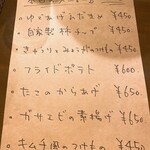 ・ゆであげえだまめ ¥450
・自家製柿チップ ¥450
・きゅうりとみょうがのつけもの ¥450
・フライドポテト ¥600
・たこのからあげ ¥650
・ガサエビの素揚げ ¥650
・キムチ風のつけもの ¥450